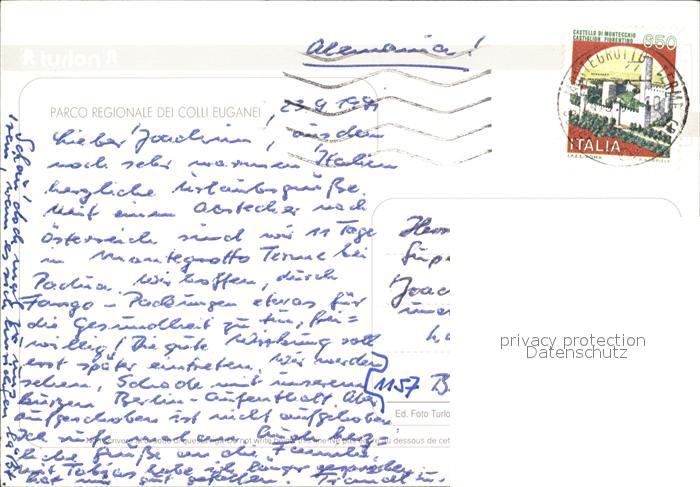 turlon
Alemania!
CASTELLO DI MONTECCHIO
CASTIGLION FIORENTINO
650
ITALIA
I.P.Z.S.-ROMA
PARCO REGIONALE DEI COLLI EUGANEI
23.9.1991
Lieber Joachim, aus dem
noch sehr warmen Italien
herzliche Urlaubsgrüße.
Mit einem Abstecher nach
Österreich sind wir 11 Tage
in Montegrotto Terme bei
Padua. Wir hoffen, durch
Fango-Packungen etwas für
die Gesundheit zu tun, frei=
willig! Die gute Wirkung soll
erst später eintreten, wir werden
sehen. Schade mit unserem
kurzen Berlin-Aufenthalt. Aber
aufgeschoben ist nicht aufgehoben.
Ich rufe
liche Grüße an die Familie,
mit Tobias habe ich länger gesprochen,
hat mir gut gefallen.
Schau doch mal
Herrn
Joac
1157 B
Ed. Foto Turlo
privacy protection
Datenschutz